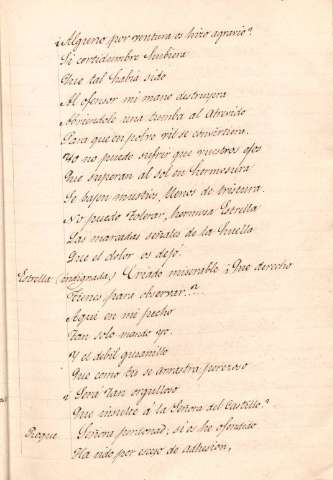 ¿Alguno por ventura os hizo agravio?
Si certidumbre hubiera
Que tal habia sido
Al ofensor mi mano destruyera
Abriendole una tumba al Atrevido
Para que en polvo vil se convirtiera.
Yo no puedo sufrir que vuestros ojos
Que superan al sol en hermosura
Se bajen mustios, llenos de tristura.
No puedo tolerar, hermosa Estrella
Las marcadas señales de la huella
Que el dolor os dejó.
Estrella (indignada) Criado miserable ¿Que derecho
Tienes para observar...?
Aquí en mi pecho
Tan solo mando yo.
Y el debil gusanillo
Que como tu se arrastra perezoso
¿Será tan orgulloso
Que insulte á la Señora del Castillo?
Roque. Señora perdonad; si os he ofendido
Ha sido por exceso de adhesion,